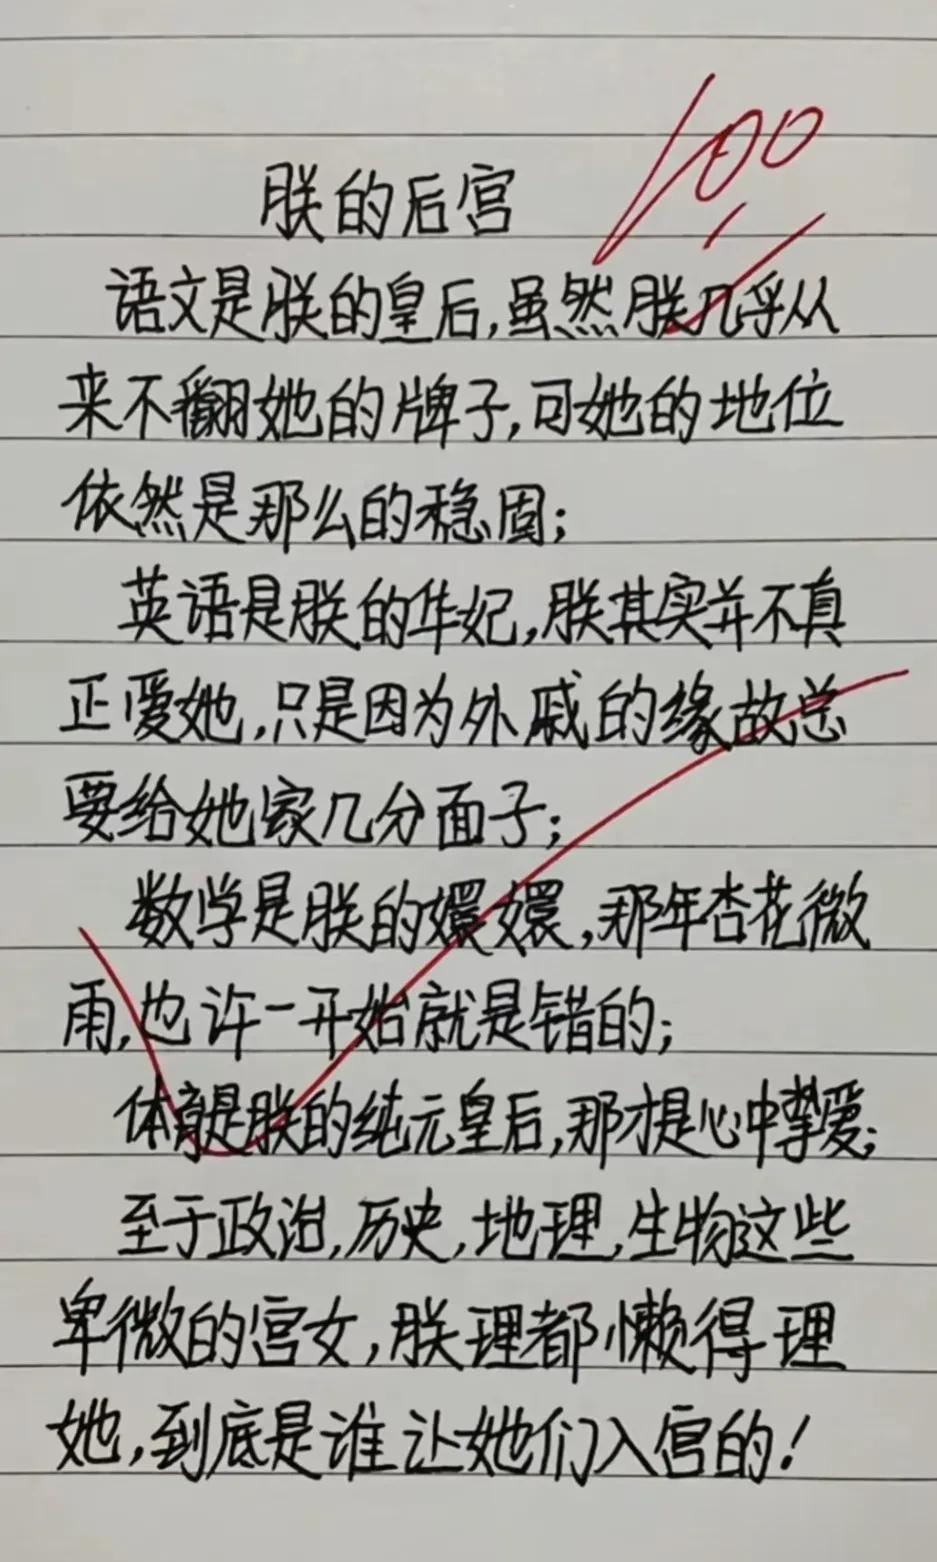 100
朕的后宫
语文是朕的皇后,虽然朕几乎从
来不翻她的牌子,可她的地位
依然是那么的稳固;
英语是朕的华妃,朕其实并不真
正爱她,只是因为外戚的缘故总
要给她家几分面子;
数学是朕的嬛嬛,那年杏花微
雨,也许一开始就是错的;
体育是朕的纯元皇后,那才是心中挚爱;
至于政治,历史,地理,生物这些
卑微的宫女,朕理都懒得理
她,到底是谁让她们入宫的!